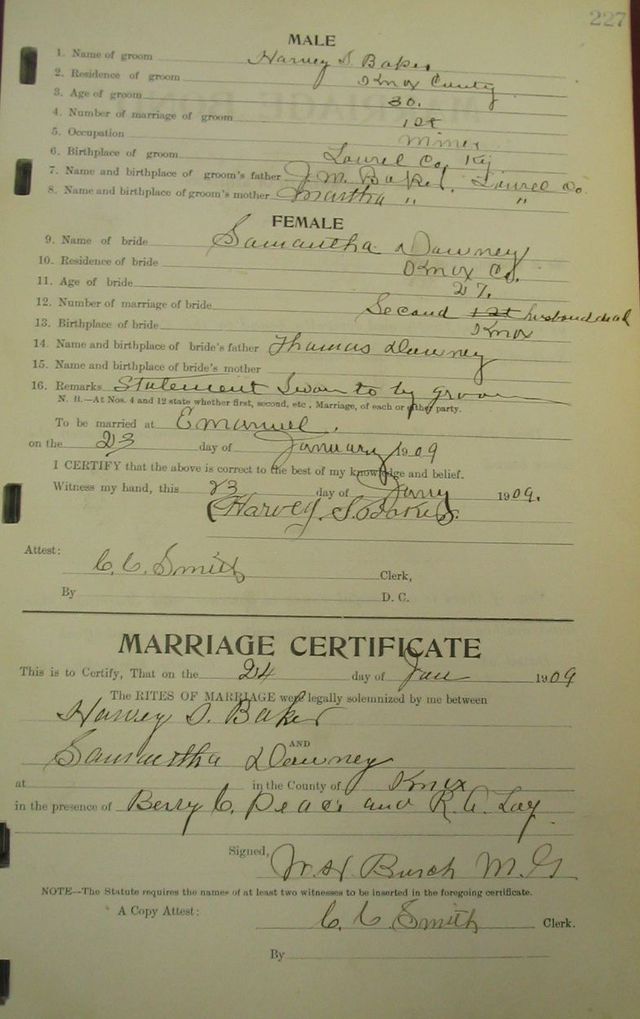 227
MALE
1. Name of groom Harvey S. Baker
2. Residence of groom Knox County
3. Age of groom 30.
4. Number of marriage of groom 1st
5. Occupation Miner
6. Birthplace of groom Laurel Co, Ky
7. Name and birthplace of groom's father J. M. Baker. Laurel Co.
8. Name and birthplace of groom's mother Martha " "
FEMALE
9. Name of bride Samantha Dawney
10. Residence of bride Knox Co.
11. Age of bride 27.
12. Number of marriage of bride Second 1st husband dead
13. Birthplace of bride Knox
14. Name and birthplace of bride's father Thomas Dawney
15. Name and birthplace of bride's mother
16. Remarks Statement Sworn to by groom
N. B.—At Nos. 4 and 12 state whether first, second, etc., Marriage, of each or either party.
To be married at Emanuel.
on the 23 day of January 1909
I CERTIFY that the above is correct to the best of my knowledge and belief.
Witness my hand, this 23 day of Jany 1909.
(Harvey S. Baker.
Attest:
C. C. Smith Clerk,
By D. C.
MARRIAGE CERTIFICATE
This is to Certify, That on the 24 day of Jan 1909
The RITES OF MARRIAGE were legally solemnized by me between
Harvey S. Baker
AND
Samantha Dawney
at in the County of Knox
in the presence of Berry C. Peace and R. A. Lay.
Signed, W. H. Burch M. G
NOTE—The Statute requires the names of at least two witnesses to be inserted in the foregoing certificate.
A Copy Attest: C. C. Smith Clerk.
By